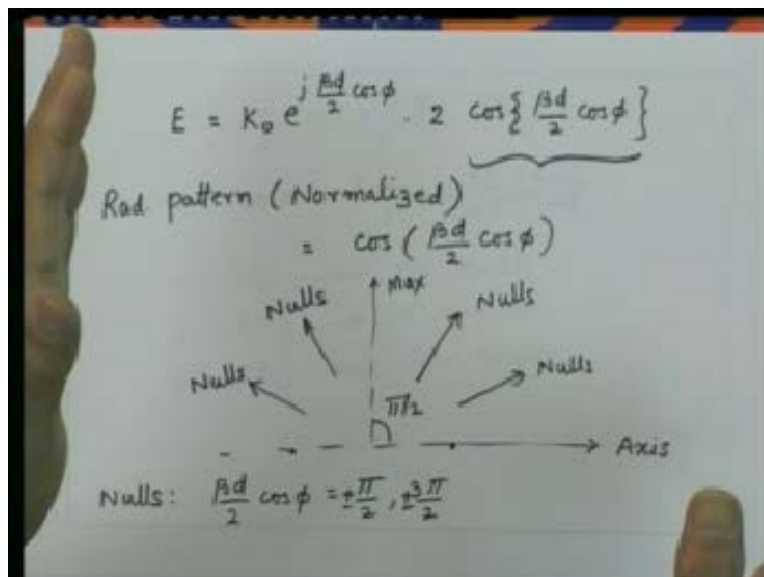 E = K₀ e^{j βd/2 cos ϕ} · 2 cos{βd/2 cos ϕ}
Rad pattern (Normalized)
= cos(βd/2 cos ϕ)
Max
Nulls Nulls
Nulls Nulls
π/2
Axis
Nulls: βd/2 cos ϕ = ±π/2, ±3π/2